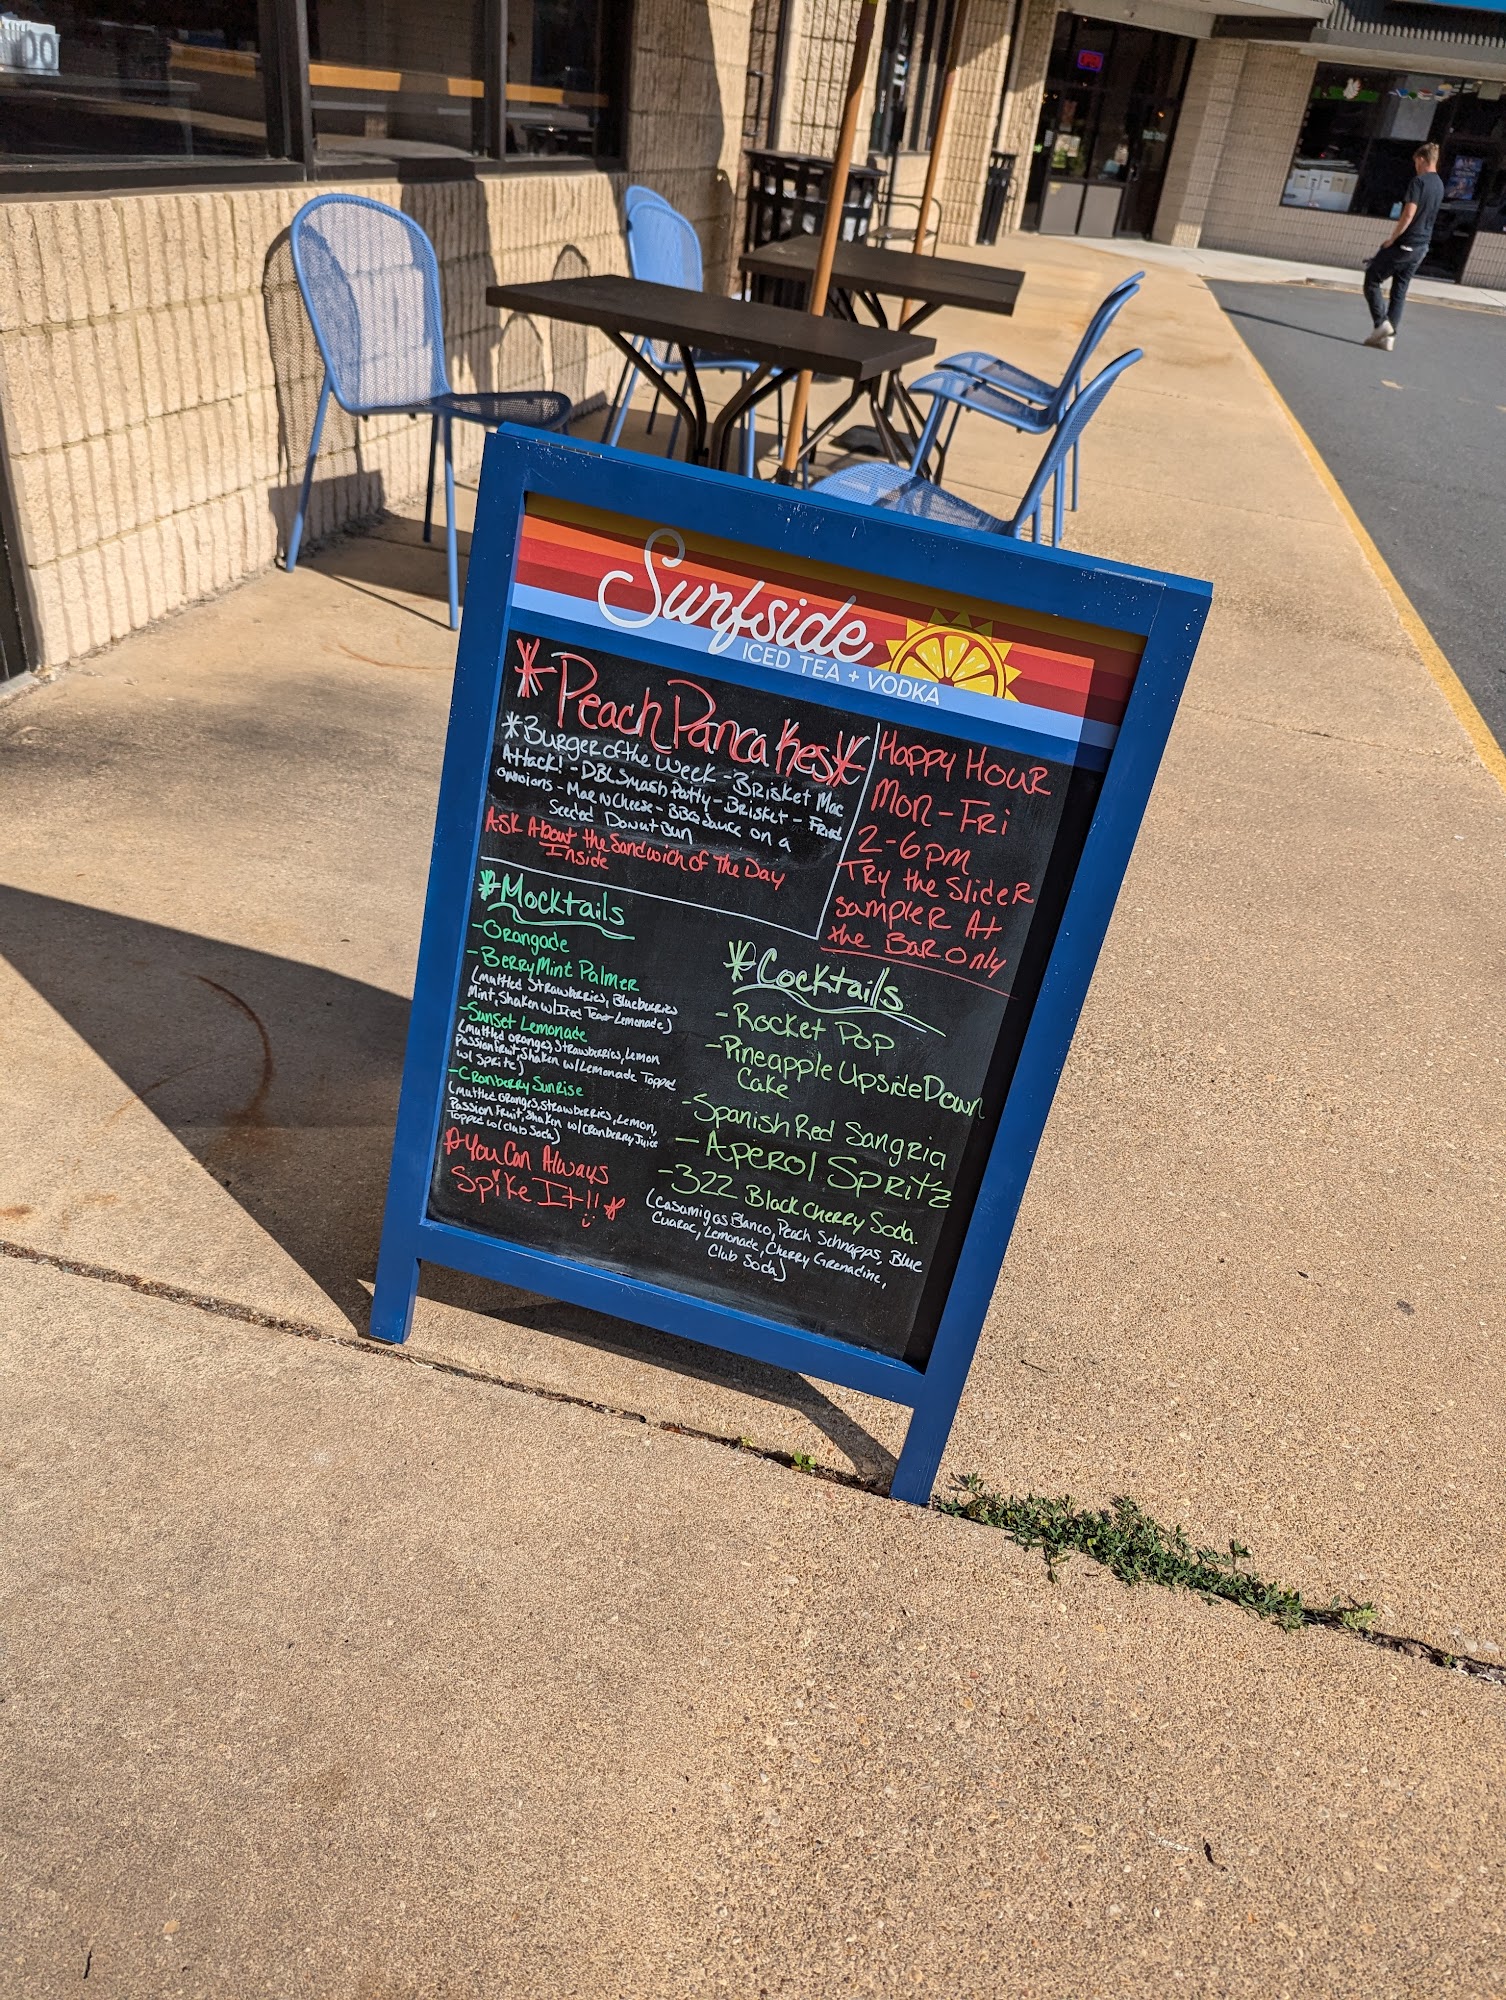 Surfside
ICED TEA + VODKA
*Peach Pancakes*
*Burger of the Week - Brisket Mac
Attack! - DBL Smash Patty - Brisket - Fried
Onions - Mac N Cheese - BBQ Sauce on a
Seeded Donut Bun
Ask About the Sandwich of The Day
Inside
Happy Hour
Mon-Fri
2-6pm
Try the Slider
Sampler At
the Bar Only
*Mocktails
-Orangade
-Berry Mint Palmer
(Muttled Strawberries, Blueberries
Mint, Shaken w/Iced Tea + Lemonade)
-Sunset Lemonade
(Muttled oranges, Strawberries, Lemon
Passionfruit, Shaken w/Lemonade Topped
w/ Sprite)
-Cranberry Sunrise
(Muttled oranges, strawberries, Lemon,
Passion Fruit, Shaken w/Cranberry Juice
Topped w/Club Soda)
*You Can Always
Spike It!! *
*Cocktails
-Rocket Pop
-Pineapple Upside Down
Cake
-Spanish Red Sangria
-Aperol Spritz
-322 Black Cherry Soda.
(Casamigos Blanco, Peach Schnapps, Blue
Curac, Lemonade, Cherry Grenadine,
Club Soda)